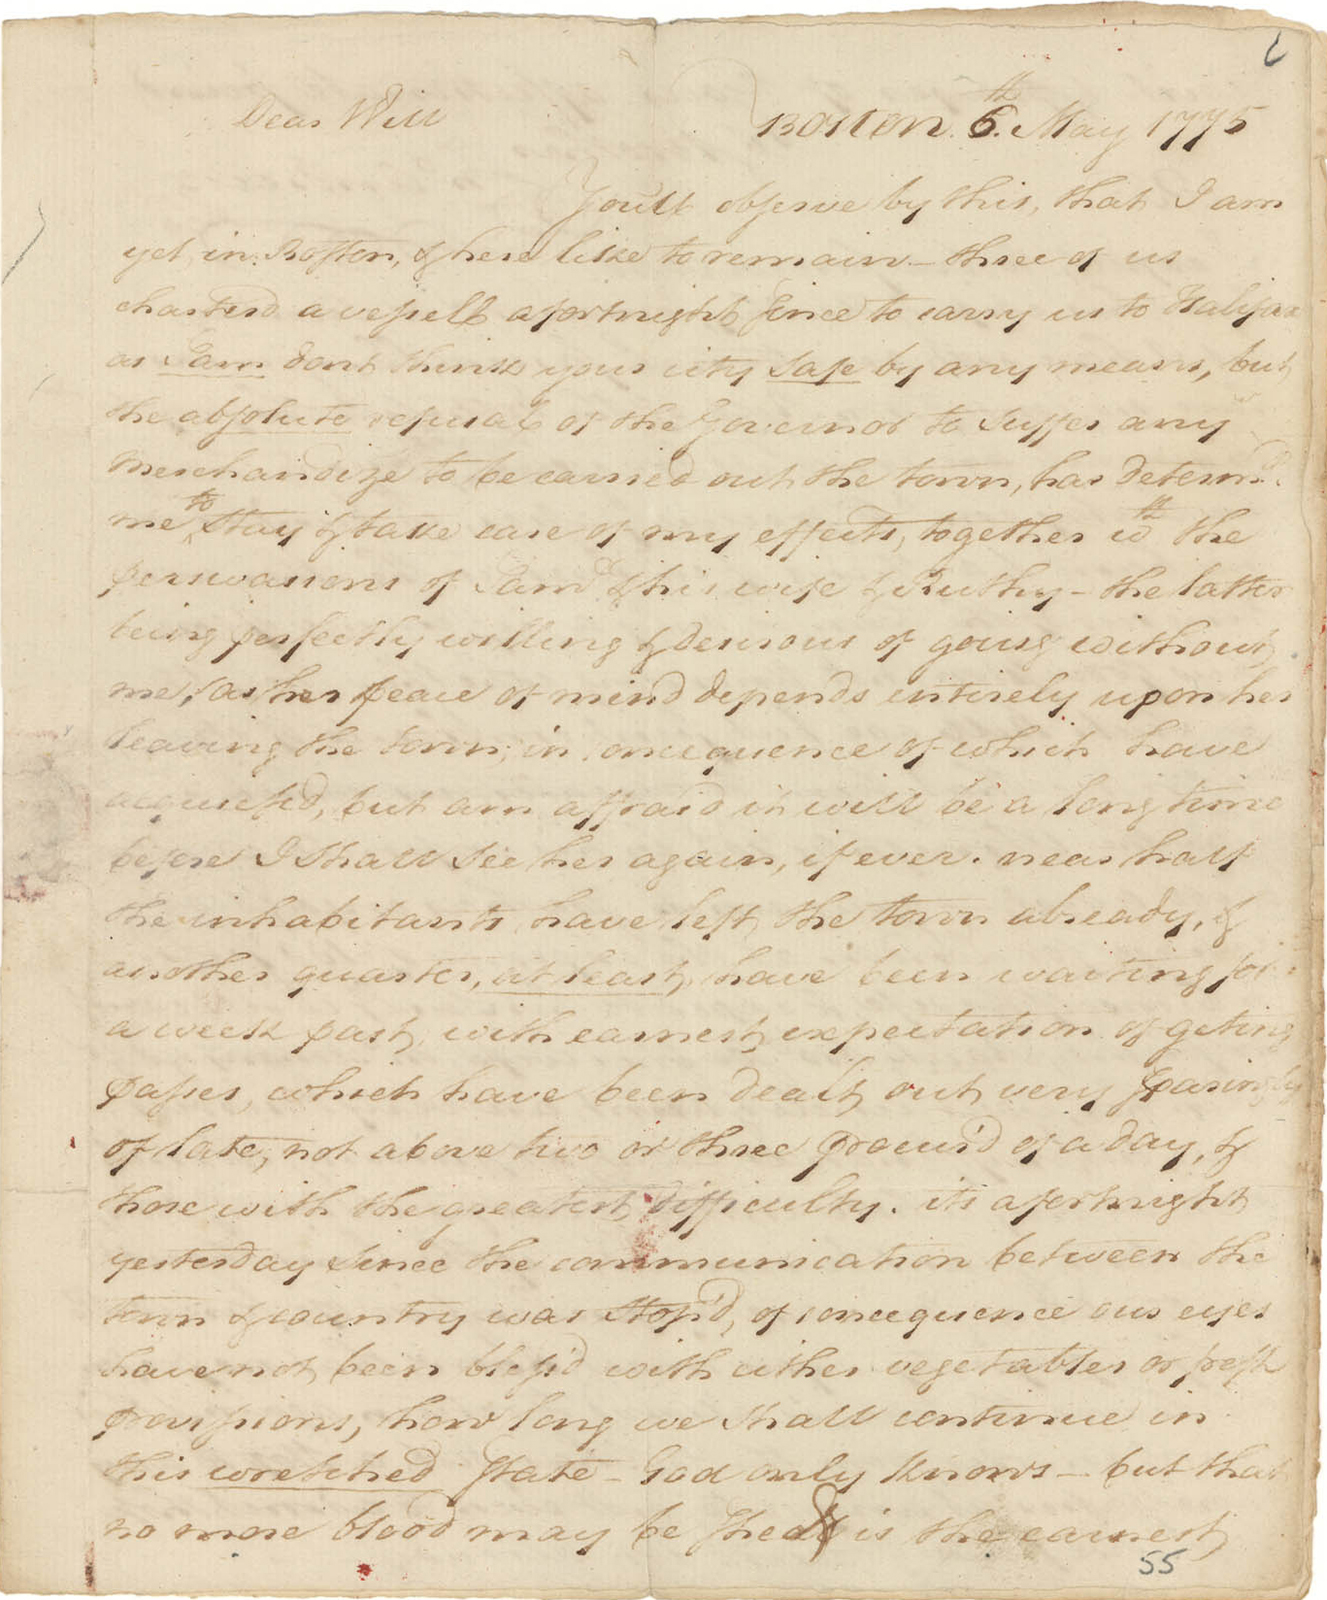 Dear Will
Boston 6th. May 1775
You'll observe by this, that I am
yet in Boston, & here like to remain — three of us
charter'd a vessell a fortnight since to carry us to Halifax
as Sam dont think your city safe by any means, but
the absolute refusal of the Governor to suffer any
Merchandize to be carried out the town, has determd.
me to stay & take care of my effects, together wth the
perswasions of Sam & his wife & Ruthy — the latter
being perfectly willing & desirous of going without
me, as her peace of mind depends entirely upon her
leaving the town; in consequence of which have
acquiesed, but am affraid it will be a long time
before I shall see her again, if ever. near half
the inhabitants have left the town already, &
another quarter, at least, have been waiting for
a week past, with earnest expectation of geting
passes, which have been dealt out very sparingly
of late, not above two or three procur'd of a day, &
those with the greatest difficulty. its a fortnight
yesterday since the communication between the
town & country was stop'd, of concequence our eyes
have not been bless'd with either vegetables or fresh
provissions, how long we shall continue in
this wretched State — God only knows — but that
no more blood may be shed is the earnest
55